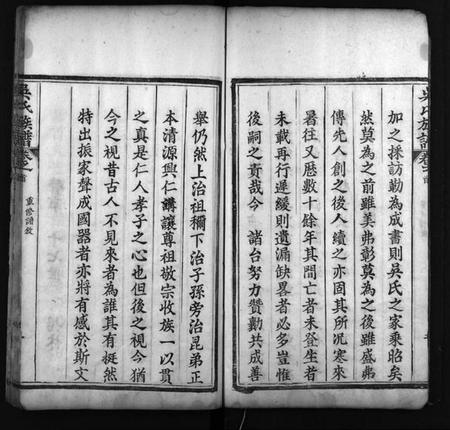 吳氏族譜 卷之首
加之採訪勤為成書則吳氏之家乘昭矣
然莫為之前雖美弗彰莫為之後雖盛弗
傳先人創之後人續之亦固其所况寒來
暑往又歷數十餘年其間亡者未登生者
未載再行遲緩則遺漏缺畧者必多豈惟
後嗣之責哉今 諸台努力贊勷共成善
舉仍然上治祖禰下治子孫旁治昆弟正
本清源興仁講讓尊祖敬宗收族一以貫
之真是仁人孝子之心也但後之視今猶
今之視昔古人不見來者為誰其有挺然
特出振家聲成國器者亦將有感於斯文
重修譜敘
吳氏族譜 卷之首